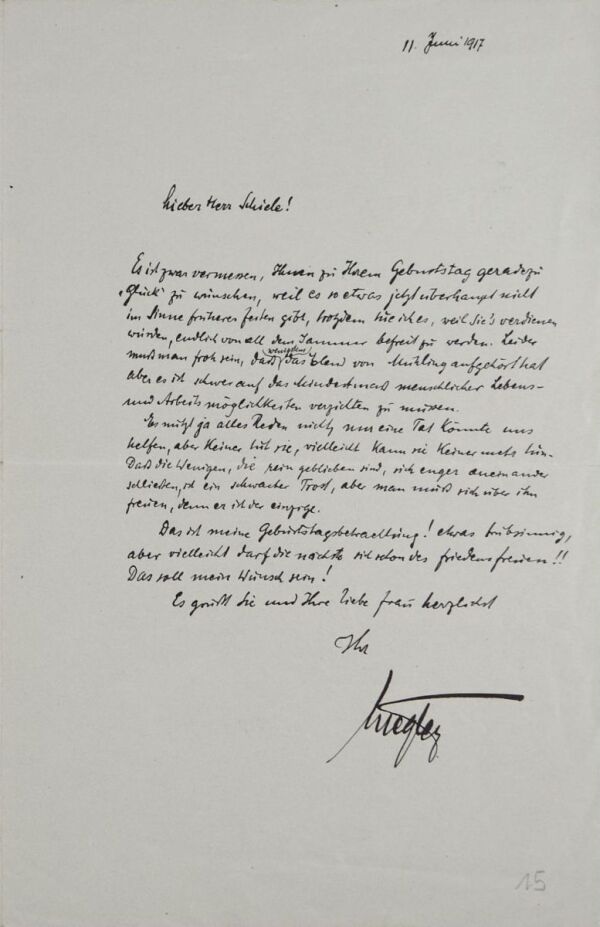 11. Juni 1917
Lieber Herr Schiele!
Es ist zwar vermessen, Ihnen zu Ihrem Geburtstag geradezu
„Glück“ zu wünschen, weil es so etwas jetzt überhaupt nicht
im Sinne früherer Zeiten gibt, trotzdem tue ich es, weil Sie's verdienen
würden, endlich von all dem Jammer befreit zu werden. Leider
muß man froh sein, daß wenigstens das Elend von Mühling aufgehört hat
aber es ist schwer auf das Mindestmaß menschlicher Lebens-
und Arbeitsmöglichkeiten verzichten zu müssen.
Es nützt ja alles Reden nicht, nur eine Tat könnte uns
helfen, aber Keiner tut sie, vielleicht kann sie Keiner mehr tun.
Daß die Wenigen, die rein geblieben sind, sich enger aneinander
schließen, ist ein schwacher Trost, aber man muß sich über ihn
freuen, denn er ist der einzige.
Das ist meine Geburtstagsbetrachtung! etwas trübsinnig,
aber vielleicht darf die nächste sich schon des Friedens freuen!!
Das soll mein Wunsch sein!
Es grüßt Sie und Ihre liebe Frau herzlichst
Ihr
15